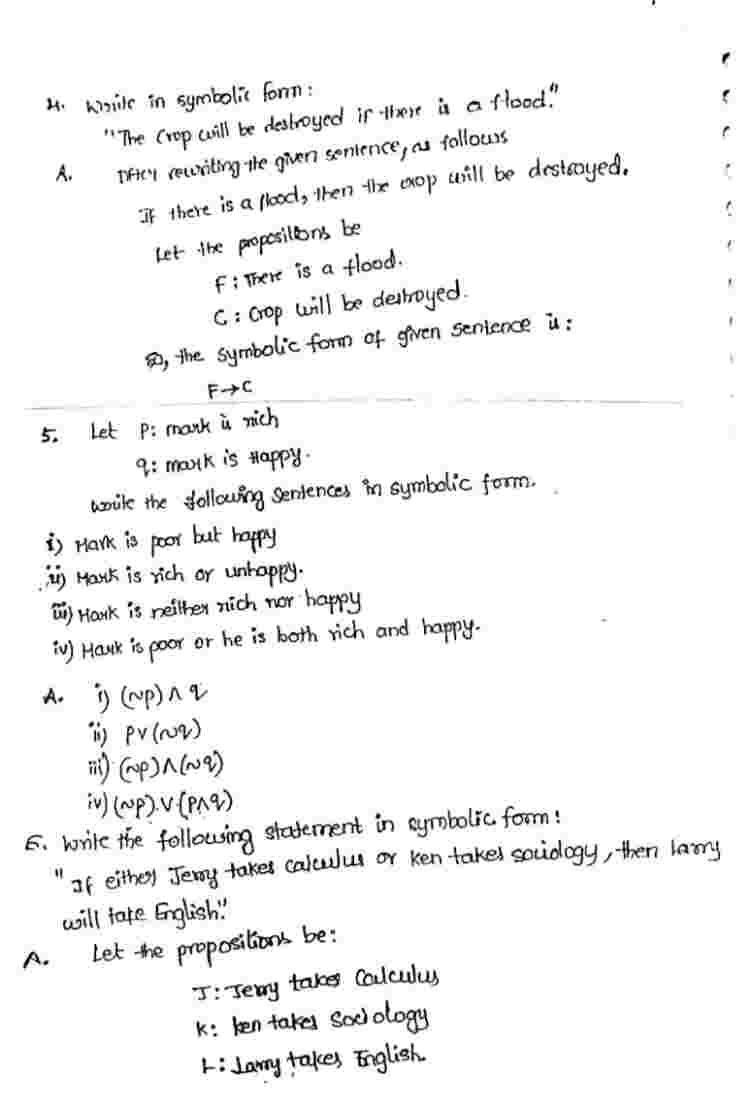 4. Write in symbolic form:
"The Crop will be destroyed if there is a flood."
A. After rewriting the given sentence, as follows
If there is a flood, then the crop will be destroyed.
Let the propositions be
F: There is a flood.
C: Crop will be destroyed.
So, the symbolic form of given sentence is:
F→C
5. Let P: mark is rich
q: mark is Happy.
write the following sentences in symbolic form.
i) Mark is poor but happy
ii) Mark is rich or unhappy.
iii) Mark is neither rich nor happy
iv) Mark is poor or he is both rich and happy.
A. i) (~p) ∧ q
ii) p∨(~q)
iii) (~p)∧(~q)
iv) (~p).∨(p∧q)
6. Write the following statement in symbolic form:
"If either Jerry takes calculus or Ken takes sociology, then larry
will take English."
A. Let the propositions be:
J: Jerry takes Calculus
K: Ken takes Sociology
L: Larry takes English